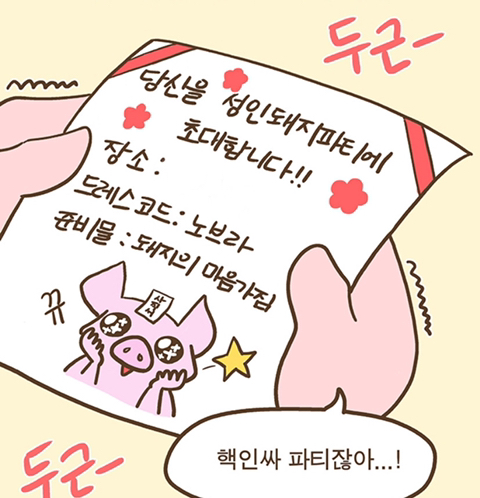 두근-
당신을 성인돼지파티에
초대합니다!!
장소 :
드레스코드 : 노브라
준비물 : 돼지의 마음가짐
ㄲㅑ
핵인싸 파티잖아...!
두근-